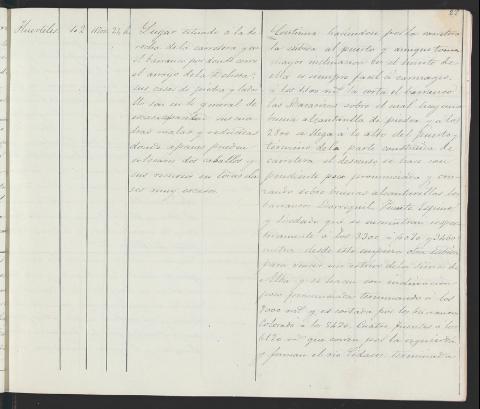 27
Huerteles 102 1700 2½ h.
Lugar situado a la de
recha de la carretera y en
el barranco por donde corre
el arroyo de la
sus casas de piedra y ladri
llo son en lo general de
escasa sus cua
dras malas y reducidas
donde apenas pueden
colocarse dos caballos y
sus recursos en todas cla
ses muy escasos.
Continua haciendose por la carretera
la subida al puerto y aunque toma
mayor inclinacion en el resto de
ella es siempre facil a carruages.
a los 1500 mts la corta el barranco
las sobre el cual hay una
buena alcantarilla de piedra y a los
2800 se llega a lo alto del puerto y
termino de la parte construida de
carretera el descenso se hace con
pendiente poco pronunciada y cru
zando sobre buenas alcantarillas los
barrancos Fuente Espino
y que se encuentran respec
tivamente a los 3300, 4020 y 5460
metros desde este empieza otra subida
para vencer un estribo de la Sierra de
Alba y se hacen con inclinacion
poco pronunciada terminando a los
8000 mts y es cortada por los barrancos
Colorado a los 5620. Cuatro fuentes a los
6120 mts que corren por la izquierda
y forman el rio Cidacos. Terminada